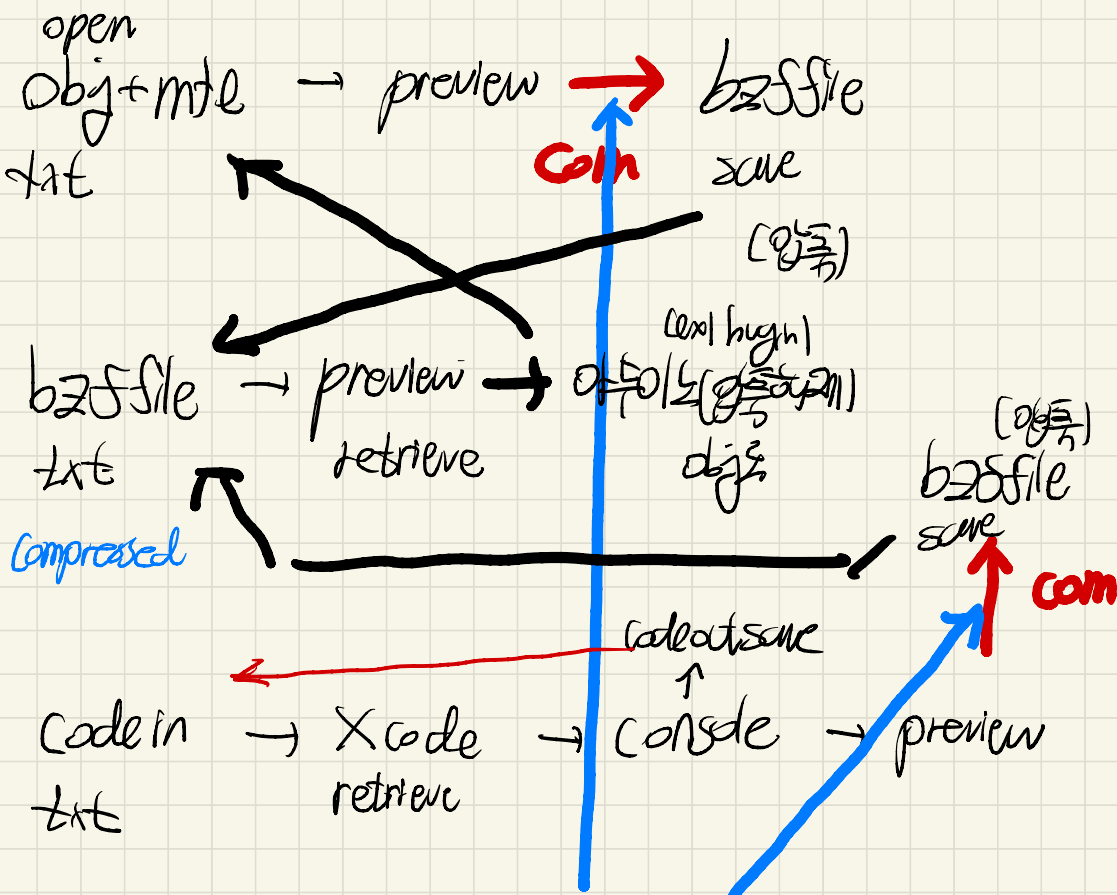 open
obj+mtl → preview → bzffile
txt
com
save
(압축)
(ex| bugn)
bzffile → preview → 아웃이는(압축하기전)
txt
retrieve
obj로
(압축)
bzffile
save
compressed
com
codeoutsave
↑
codein → Xcode → console → preview
txt
retrieve